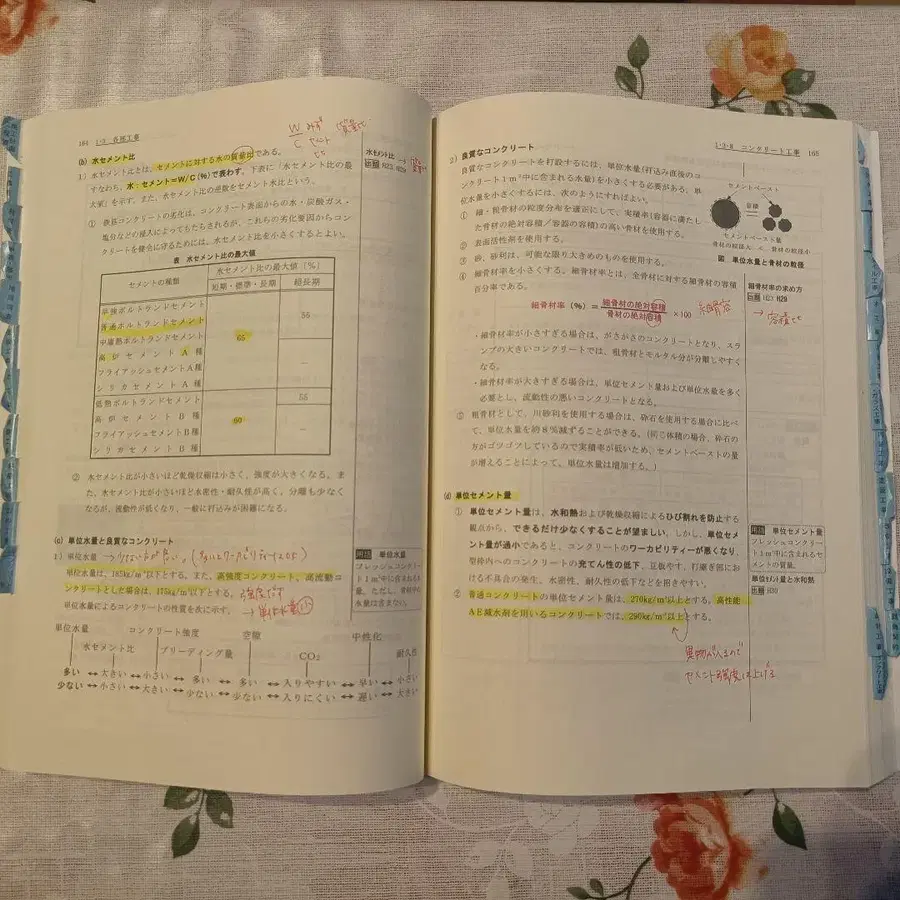 164 1·3 各種工事
(b) 水セメント比
1) 水セメント比とは、セメントに対する水の質量比である。
すなわち、水：セメント＝W/C(%)で表わす。下表に「水セメント比の最
大値」を示す。また、水セメント比の逆数をセメント水比という。
① 鉄筋コンクリートの劣化は、コンクリート表面からの水・炭酸ガス・
塩分などの浸入によってもたらされるが、これらの劣化要因からコン
クリートを健全に守るためには、水セメント比を小さくするとよい。
W みず
C セメント
質量比
水セメント比
出題
表 水セメント比の最大値
セメントの種類
水セメント比の最大値 (%)
短期・標準・長期
超長期
早強ポルトランドセメント
普通ポルトランドセメント
中庸熱ポルトランドセメント
高炉セメントA種
フライアッシュセメントA種
シリカセメントA種
65
55
―
低熱ポルトランドセメント
高炉セメントB種
フライアッシュセメントB種
シリカセメントB種
60
55
―
② 水セメント比が小さいほど乾燥収縮は小さく、強度が大きくなる。ま
た、水セメント比が小さいほど水密性・耐久性が高く、分離も少なく
なるが、流動性が低くなり、一般に打込みが困難になる。
(c) 単位水量と良質なコンクリート
1) 単位水量
単位水量は、185kg/m³以下とする。また、高強度コンクリート、高流動コ
ンクリートとした場合は、175kg/m³以下とする。
単位水量によるコンクリートの性質を次に示す。
→ 単位水量 小
用語 単位水量
フレッシュコンクリー
ト1m³中に含まれる水
量。ただし、骨材中の
水量は含まない。
単位水量 コンクリート強度 空隙 中性化
水セメント比 ブリーディング量 CO₂ 耐久性
多い ↔ 大きい ↔ 小さい ↔ 多い ↔ 多い ↔ 入りやすい ↔ 早い ↔ 小さい
少ない ↔ 小さい ↔ 大きい ↔ 少ない ↔ 少ない ↔ 入りにくい ↔ 遅い ↔ 大きい
1·3·8 コンクリート工事 165
2) 良質なコンクリート
良質なコンクリートを打設するには、単位水量(打込み直後のコ
ンクリート1m³中に含まれる水量)を小さくする必要がある。単
位水量を小さくするには、次のようにすればよい。
① 細・粗骨材の粒度分布を適正にして、実積率(容器に満たし
た骨材の絶対容積／容器の容積)の高い骨材を使用する。
② 表面活性剤を使用する。
③ 砂、砂利は、可能な限り大きめのものを使用する。
④ 細骨材率を小さくする。細骨材率とは、全骨材に対する細骨材の容積
百分率である。
細骨材率 (%) ＝ 細骨材の絶対容積 / 骨材の絶対容積 ×100
・細骨材率が小さすぎる場合は、がさがさのコンクリートとなり、スラ
ンプの大きいコンクリートでは、粗骨材とモルタル分が分離しやすく
なる。
・細骨材率が大きすぎる場合は、単位セメント量および単位水量を多く
必要とし、流動性の悪いコンクリートとなる。
⑤ 粗骨材として、川砂利を使用する場合は、砕石を使用する場合に比べ
て、単位水量を約8%減ずることができる。(同じ体積の場合、砕石の
方がゴツゴツしているので実積率が低いため、セメントペーストの量
が増えることによって、単位水量は増加する。)
セメントペースト
容積
セメントペースト量
骨材の粒径大 ＜ 骨材の粒径小
図 単位水量と骨材の粒径
細骨材率の求め方
出題 H29
→ 容積比
(d) 単位セメント量
① 単位セメント量は、水和熱および乾燥収縮によるひび割れを防止する
観点から、できるだけ少なくすることが望ましい。しかし、単位セメ
ント量が過小であると、コンクリートのワーカビリティーが悪くなり、
型枠内へのコンクリートの充てん性の低下、豆板やす、打継ぎ部にお
ける不具合の発生、水密性、耐久性の低下などを招きやすい。
② 普通コンクリートの単位セメント量は、270kg/m³以上とする。高性能
AE減水剤を用いるコンクリートでは、290kg/m³以上とする。
用語 単位セメント量
フレッシュコンクリー
ト1m³中に含まれるセ
メントの質量。
単位セメント量と水和熱
出題 H30
異物が入るので
セメント強度は上げる